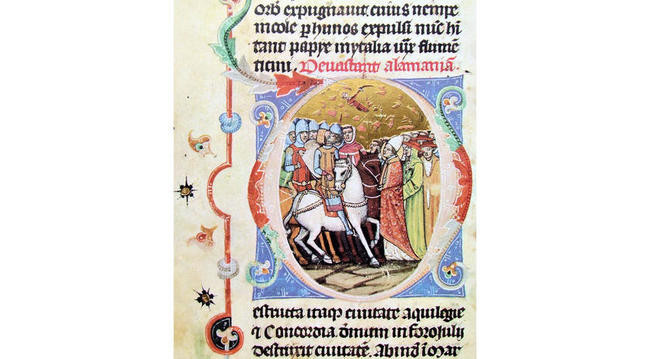 expugnauit, cuius nempe
incole phunos expulsi nūc hi
tant papie inytalia iux flumē
ticini. Deuastant alamaniā.
estructa itaq ciuitate aquilegie
Concordia omnem in foroJuly
destruxit ciuitatē. Abind